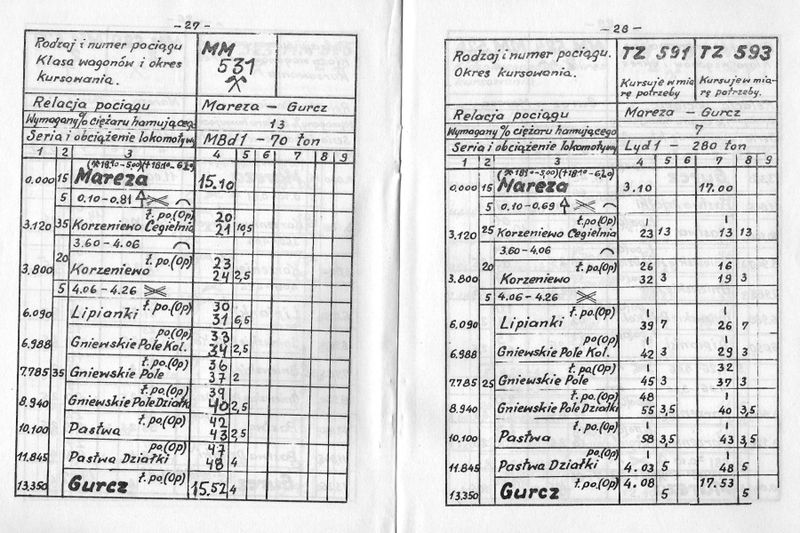 - 27 -
Rodzaj i numer pociągu
Klasa wagonów i okres
kursowania.
MM
531
Relacja pociągu
Mareza - Gurcz
Wymagany % ciężaru hamującego
13
Seria i obciążenie lokomotywy
MBd1 - 70 ton
1 2 3 4 5 6 7 8 9
0.000 15 Mareza 15.10
5 0.10-0.81
ł. po.(Op) 20
3.120 35 Korzeniewo Cegielnia 21 10,5
3.60-4.06
20 ł. po.(Op) 23
3.800 Korzeniewo 24 2,5
5 4.06-4.26
ł. po.(Op) 30
6.090 Lipianki 31 6,5
po(Op) 33
6.988 Gniewskie Pole Kol. 34 2,5
ł. po.(Op) 36
7.785 35 Gniewskie Pole 37 2
ł. po.(Op) 39
8.940 Gniewskie Pole Działki 40 2,5
ł. po.(Op) 42
10,100 Pastwa 43 2,5
po(Op) 47
11.845 Pastwa Działki 48 4
ł. po.(Op)
13,350 Gurcz 15.52 4
- 28 -
Rodzaj i numer pociągu.
Okres kursowania.
TZ 591 TZ 593
Kursuje w mia
rę potrzeby
Kursuje w mia-
rę potrzeby.
Relacja pociągu
Mareza - Gurcz
Wymagany % ciężaru hamującego
7
Seria i obciążenie lokomotywy
Lyd1 - 280 ton
1 2 3 4 5 6 7 8 9
0,000 15 Mareza 3.10 17.00
5 0.10-0.69
ł. po(Op) I I
3,120 25 Korzeniewo Cegielnia 23 13 13 13
3.60-4.06
20 ł. po(Op) 26 16
3.800 Korzeniewo 32 3 19 3
5 4.06-4.26
ł. po.(Op) I I
6,090 Lipianki 39 7 26 7
po(Op) I I
6,988 Gniewskie Pole Kol. 42 3 29 3
ł. po.(Op) I 32
7.785 25 Gniewskie Pole 45 3 37 3
ł. po.(Op) 48 I
8.940 Gniewskie Pole Działki 55 3,5 40 3,5
ł. po.(Op) I I
10,100 Pastwa 58 3,5 43 3,5
po.(Op) I I
11.845 Pastwa Działki 4.03 5 48 5
ł. po.(Op) 4.08 17.53
13,350 Gurcz 5 5